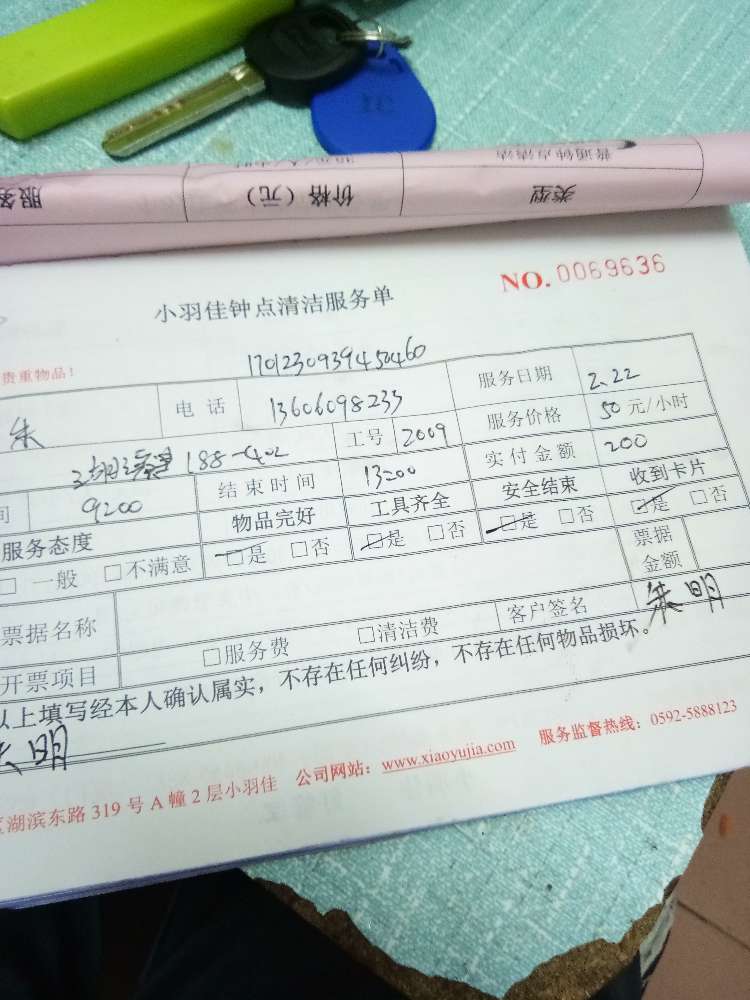 服务
价格（元）
类型
普通钟点清洁
NO. 0069636
小羽佳钟点清洁服务单
贵重物品！
1701230939450460
朱 电话 13606098233 服务日期 2.22
188-402 工号 2009 服务价格 50 元/小时
间 9200 结束时间 13200 实付金额 200
服务态度 物品完好 工具齐全 安全结束 收到卡片
□ 一般 □不满意 □是 □否 □是 □否 □是 □否 □是 □否
票据名称 票据金额
开票项目 □服务费 □清洁费 客户签名 朱明
以上填写经本人确认属实，不存在任何纠纷，不存在任何物品损坏。
朱明
湖滨东路 319 号 A 幢 2 层小羽佳 公司网站：www.xiaoyujia.com 服务监督热线：0592-5888123